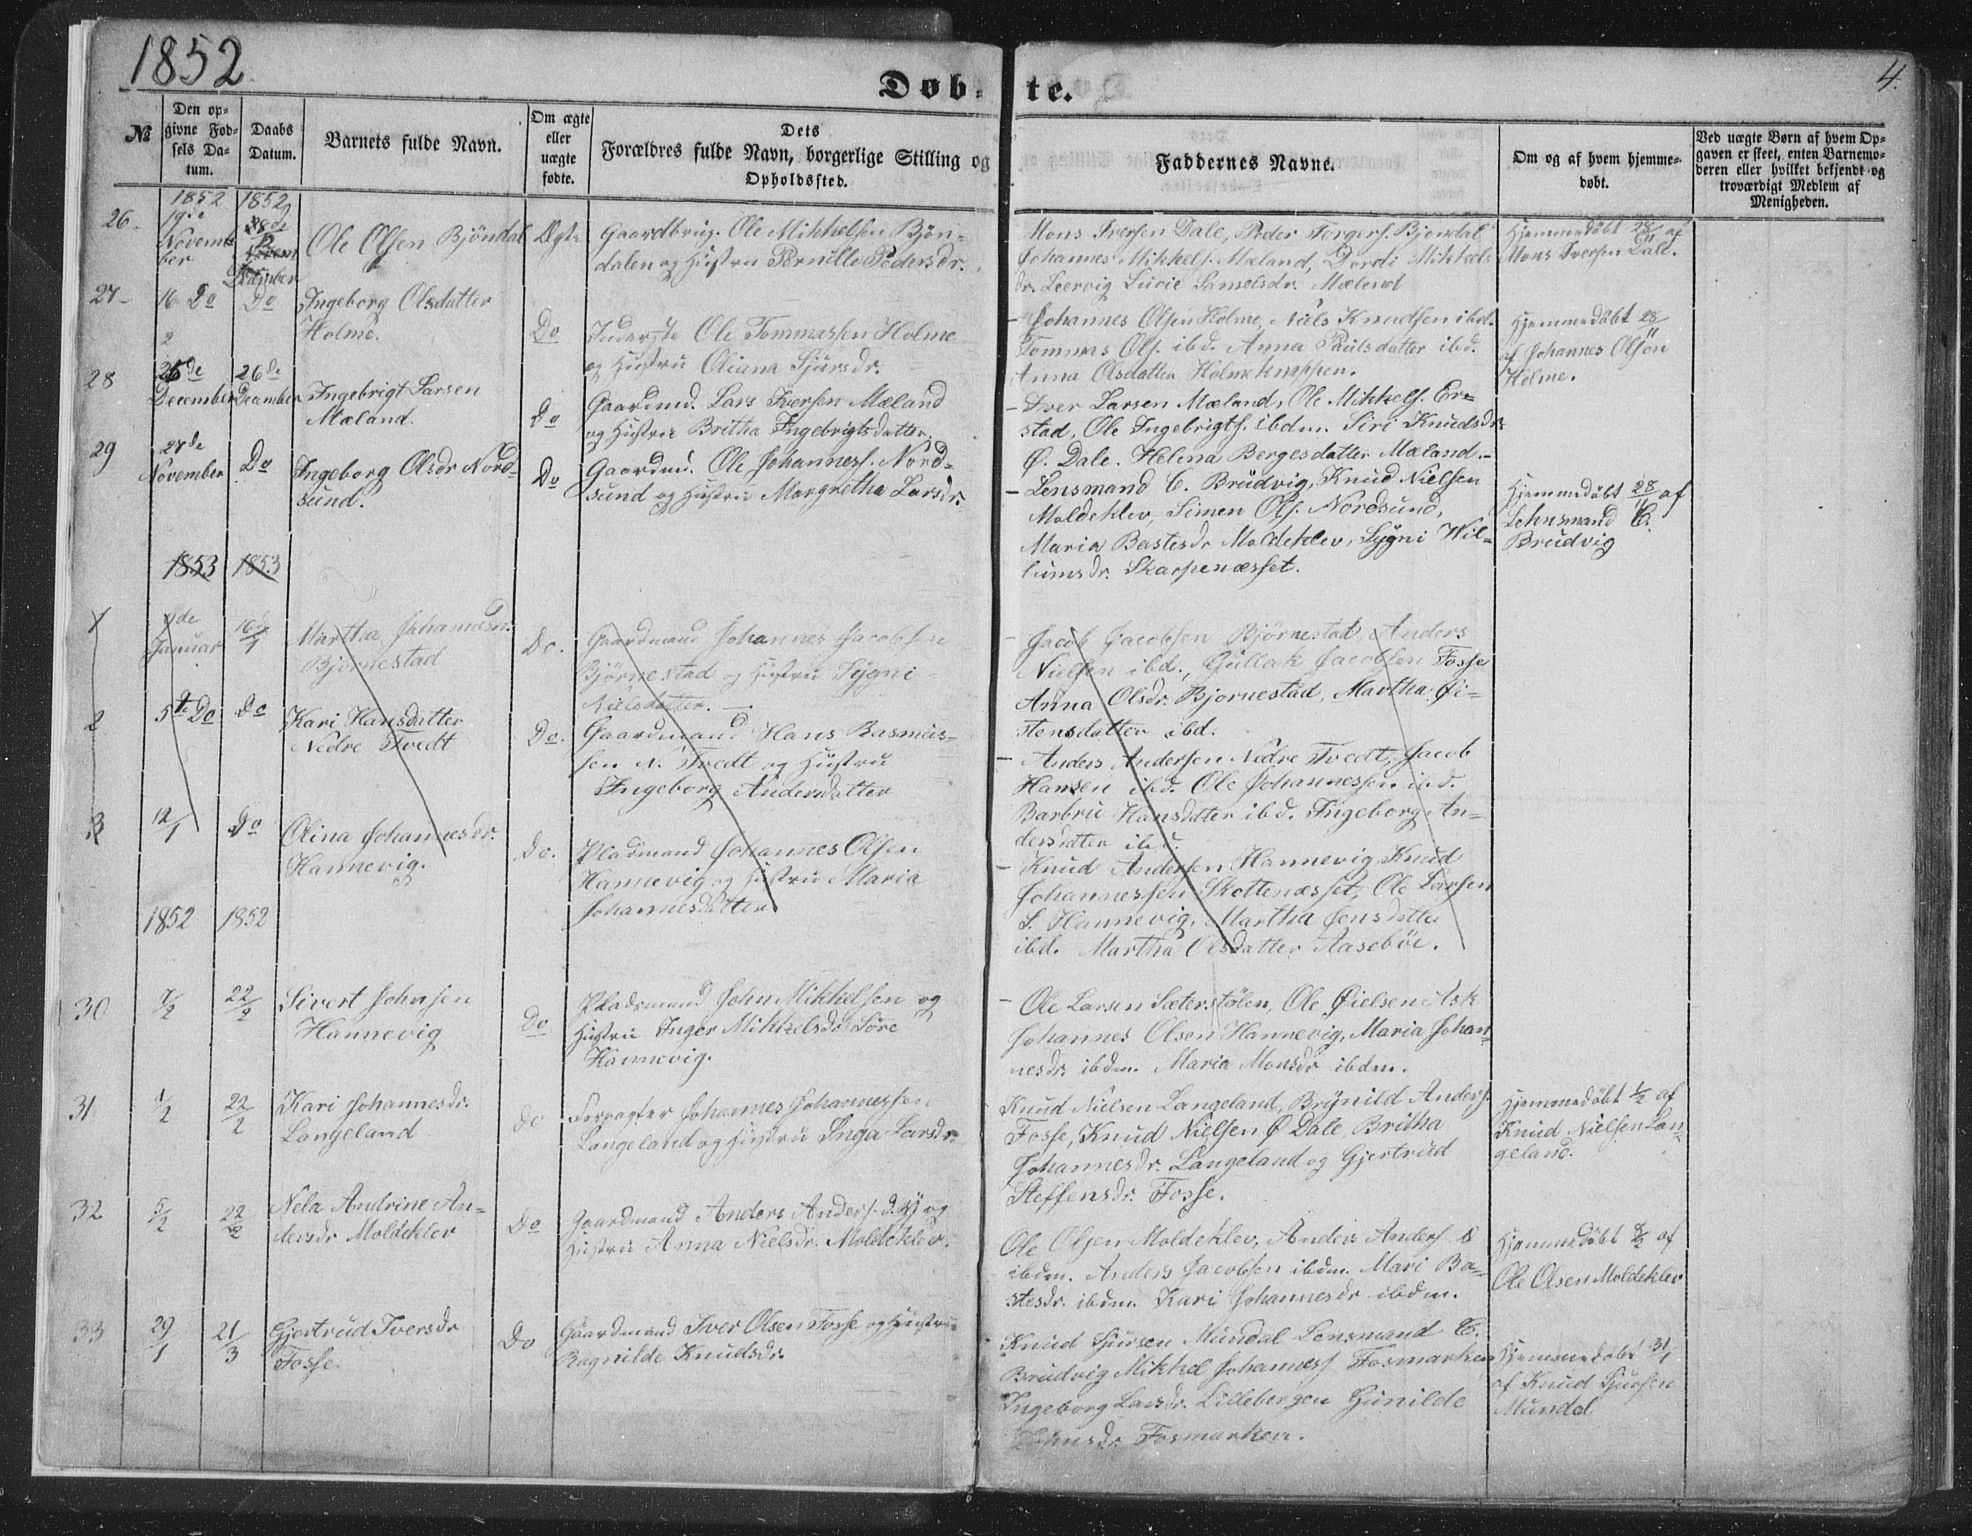 1852
Døb-te.
4.
№
Den op-
givne Fød-
sels Da-
tum.
Daabs
Datum.
Barnets fulde Navn.
Om ægte
eller
uægte
fødte.
Dets
Forældres fulde Navn, borgerlige Stilling og
Opholdssted.
Faddernes Navne.
Om og af hvem hjemme-
døbt.
Ved uægte Børn af hvem Op-
gaven er skeet, enten Barnemo-
deren eller hvilket bekjendt og
troværdigt Medlem af
Menigheden.
1852 1852
26.
19de
Novem-
ber
Ole Olsen Bjöndal
Ægte
Gaardbrug. Ole Mikkelsen Bjön-
dalen og Hustru Pernille Pedersdr.
Mons Iversen Dale, Peder Torgers. Bjondal
Johannes Mikkels. Mæland, Dordi Mikkels
dr. Leervig Lucie Samelsdr. Mæland
Hjemmedöbt 28/11 af
Mons Iversen Dale.
27
16 Do
Do
Ingeborg Olsdatter
Holme.
Do
Inderste Ole Tommassen Holme
og Hustru Oliana Sjursdr.
Johannes Olsen Holme, Niels Knudsen ibd.
Tommas Ols. ibd. Anna Paulsdatter ibd.
Anna Olsdatter Holmeknappen.
Hjemmedöbt 28/11
af Johannes Olsen
Holme.
28
December
26de
December
Ingebrigt Larsen
Mæland.
Do
Gaardmd. Lars Iversen Mæland
og Hustru Britha Ingebrigtsdatter.
Iver Larsen Mæland, Ole Mikkels. Er-
stad, Ole Ingebrigts. ibdm. Siri Knudsdr.
Ø. Dale. Helena Bergesdatter Mæland.
29
27de
November
Do
Ingeborg Olsdr Nord-
sund.
Do
Gaardmd. Ole Johannes. Nord-
sund og Hustru Margretha Larsdr.
Lensmand C. Brudvig, Knud Nielsen
Moldeklev, Simen Ols. Nordsund,
Maria Bastesdr Moldeklev, Sygni Wil-
lumsdr. Skarpenæsset.
Hjemmedöbt 28/11 af
Lehnsmand C.
Brudvig
1853 1853
1
Januar
16de/1
Martha Johannesdr.
Bjørnestad
Do.
Gaardmand Johannes Jacobsen
Bjørnestad og Hustru Sygni
Nielsdatter.
Jacob Jacobsen Bjørnestad, Anders
Nielsen ibd., Gullak Jacobsen Fosse
Anna Olsdr. Bjornestad, Martha Øi-
stensdatter ibd.
2
5te Do
Do
Kari Hansdatter
Nedre Tvedt
Do.
Gaardmand Hans Rasmus-
sen N. Tvedt og Hustru
Ingeborg Andersdatter
Anders Andersen Nedre Tvedt, Jacob
Hansen ibd. Ole Johannessen ibd.
Barbru Hansdatter ibd. Ingeborg An-
dersdatter ibd.
3
12/1
Do
Olina Johannesdr.
Hannevig.
Do.
Pladmand Johannes Olsen
Hannevig og Hustru Maria
Johannesdatter
Knud Andersen Hannevig, Knud
Johannessen Skottenæsset, Ole Larsen
S. Hannevig, Martha Jensdatter
ibd. Martha Olsdatter Aasebøe.
1852 1852
30
7/2
22/2
Sivert Johnsen
Hannevig
Do
Pladsmand John Mikkelsen og
Hustru Inger Mikkelsdr Søre
Hannevig.
Ole Larsen Sæterstølen, Ole Øielsen Ask
Johannes Olsen Hannevig, Maria Johan-
nesdr. ibdm. Maria Monsdr ibdm.
31
1/2
22/2
Kari Johannesdr.
Langeland
Do
Forpagter Johannes Johannessen
Langeland og Hustru Inga Larsdr.
Knud Nielsen Langeland, Brynild Anders.
Fosse, Knud Nielsen Ø Dale, Britha
Johannesdr. Langeland og Gjertrud
Steffensdr. Fosse.
Hjemmedöbt 1/2 af
Knud Nielsen Lan-
geland.
32
5/2
22/2
Nela Andrine An-
dersdr Moldeklev
Do
Gaardmand Anders Anders. d. y og
Hustru Anna Nielsdr. Moldeklev.
Ole Olsen Moldeklev, Anders Anders. d
ibdm. Anders Jacobsen ibdm. Mari Ba-
stesdr. ibdm. Kari Johannesdr ibdm.
Hjemmedöbt 8/2 af
Ole Olsen Moldeklev
33
29/1
21/3
Gjertrud Iversdr
Fosse.
Do
Gaardmand Iver Olsen Fosse og Hustru
Ragnilde Knudsdr.
Knud Sjursen Mundal Lensmand C.
Brudvig Mikkel Johanness Fosmarken
Ingeborg Larsdr. Lillebergen Gunilde
Fosmarken.
Hjemmedöbt 31/1
af Knud Sjursen
Mundal